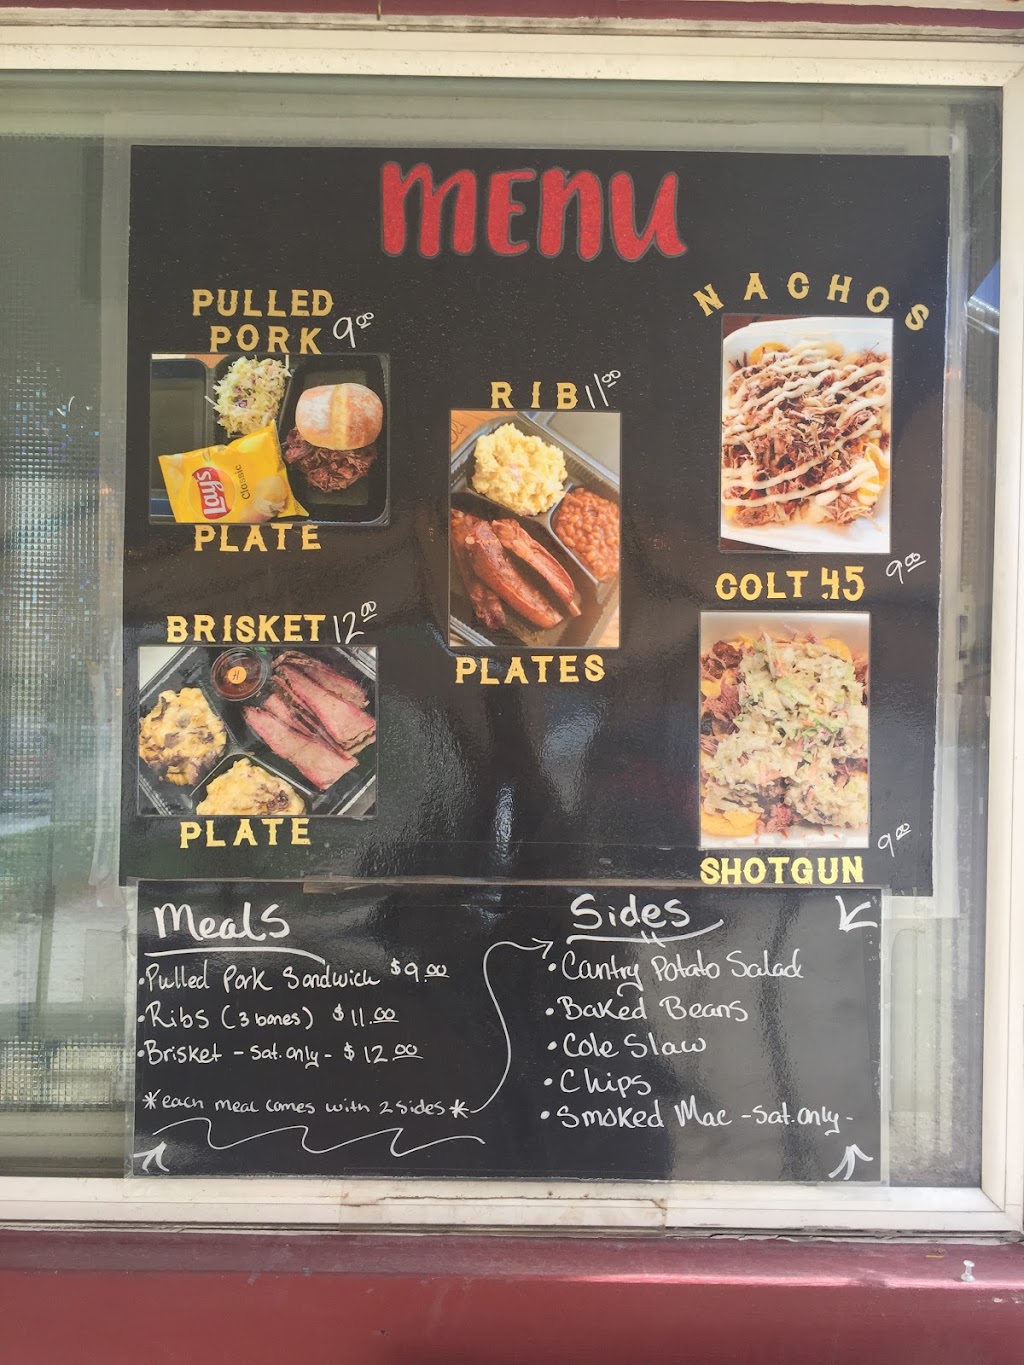 MENU
PULLED
PORK 9.00
Lay's
Classic
PLATE
BRISKET 12.00
PLATE
RIB 11.00
PLATES
NACHOS
COLT .45 9.00
SHOTGUN 9.00
Meals
•Pulled Pork Sandwich $9.00
•Ribs (3 bones) $11.00
•Brisket - Sat. only - $12.00
*each meal comes with 2 sides*
Sides
•Cantry Potato Salad
•Baked Beans
•Cole Slaw
•Chips
•Smoked Mac - Sat. only -